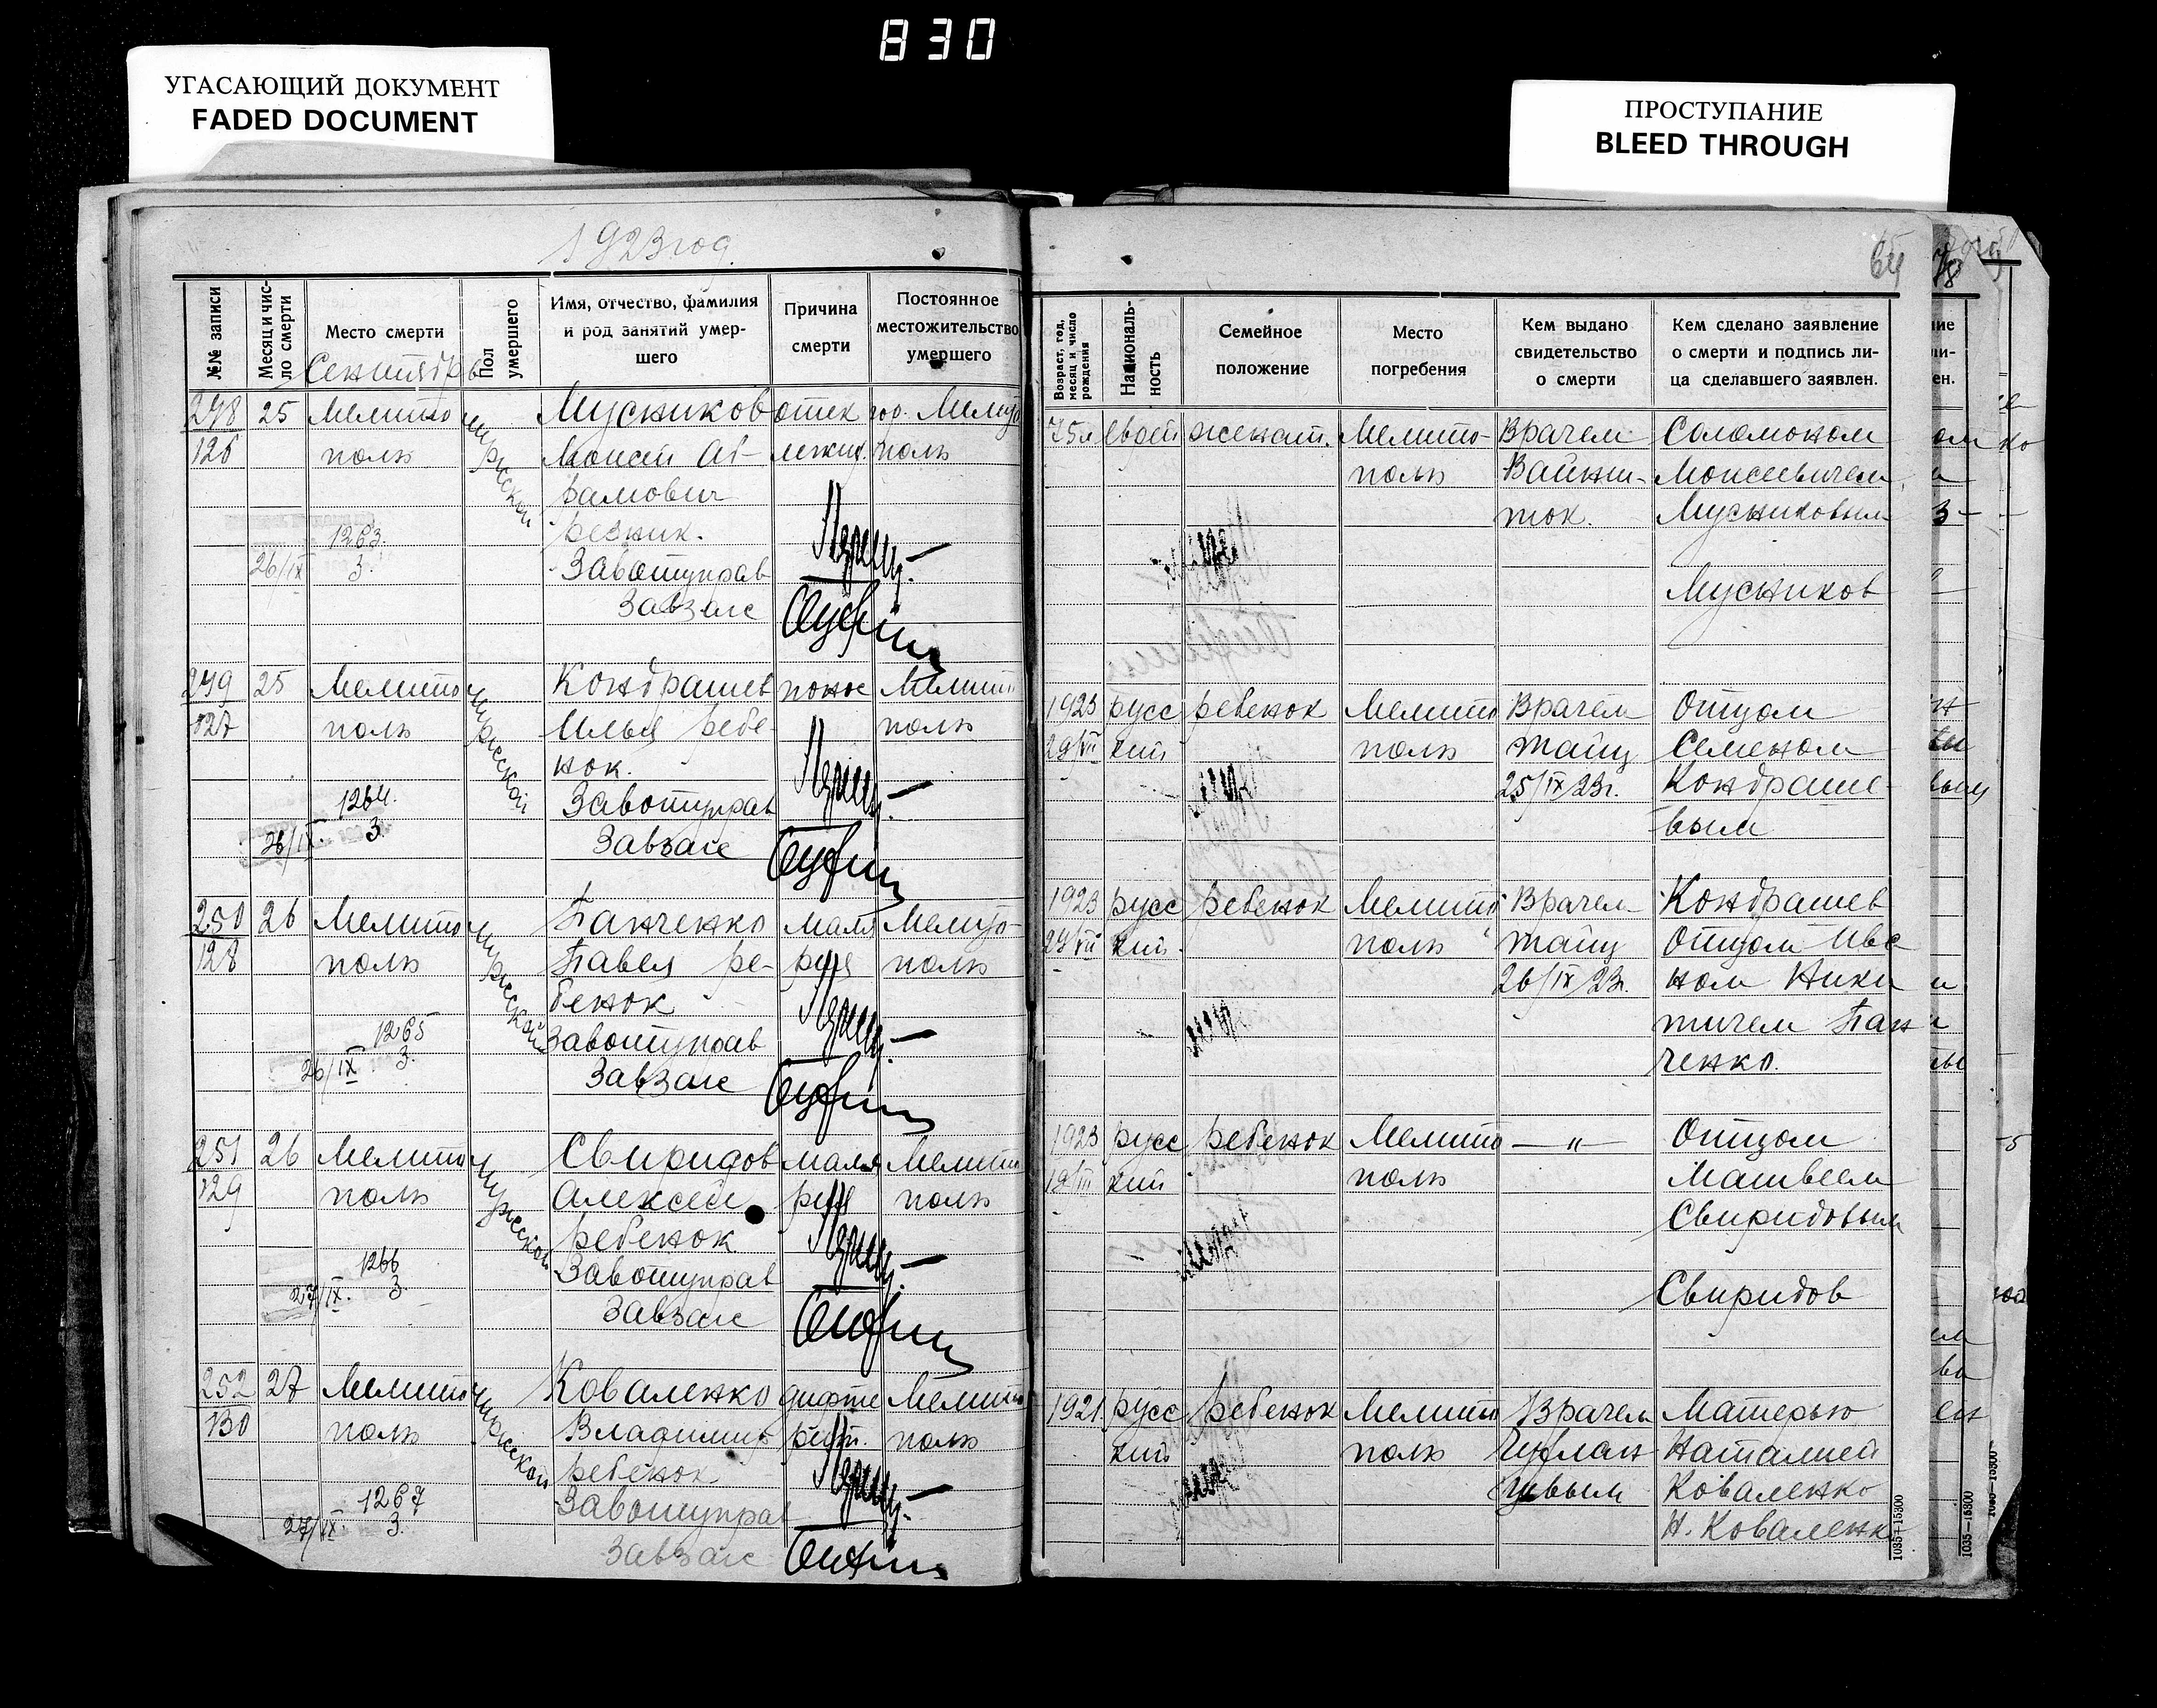 830
УГАСАЮЩИЙ ДОКУМЕНТ
FADED DOCUMENT
ПРОСТУПАНИЕ
BLEED THROUGH
1923 год.
64
№№ записи
Месяц и число смерти
Место смерти
Сентябрь
Пол умершего
Имя, отчество, фамилия
и род занятий умер-
шего
Причина
смерти
Постоянное
местожительство
умершего
Возраст, год, месяц и число рождения
Националь-
ность
Семейное
положение
Место
погребения
Кем выдано
свидетельство
о смерти
Кем сделано заявление
о смерти и подпись ли-
ца сделавшего заявлен.
248 25 Мелито мужской Мусников отек гор. Мелито
126 поль Моисей Аб- легких. поль
рамович
резник.
1263
3.
26/IX
Завотуправ
Завзагс
75 л еврей женат. Мелито- Врачем Соломоном
поль Вайнш- Моисеевичем
ток. Мусниковым
Мусников
249 25 Мелито мужской Кондрашев понос Мелито
127 поль Илья ребе- поль
нок.
1264.
3
26/IX.
Завотуправ
Завзагс
1923 русс ребенок Мелито Врачем Отцом
29/VII кий поль Тайц Семеном
25/IX 23г. Кондраше-
вым
Кондрашев
250 26 Мелито мужской Панченко маля Мелито-
128 поль Павел ре- рия поль
бенок
1265
3.
26/IX
Завотуправ
Завзагс
1923 русс ребенок Мелито Врачем
кий поль Тайц Отцом Ива
26/IX 23г. ном Ники
тичем Пан
ченко.
251 26 Мелито мужской Свиридов маля Мелито
129 поль Алексей рия поль
ребенок
1266
3.
27/IX.
Завотуправ
Завзагс
1923 русс ребенок Мелито — " — Отцом
кий поль Матвеем
Свиридовым
Свиридов
252 27 Мелито мужской Коваленко дифте Мелито
130 поль Владимир рит. поль
ребенок
1267
3.
27/IX.
Завотуправ
Завзагс
1921. русс ребенок Мелито Врачем Матерью
кий поль Наталией
Коваленко
Н. Коваленко
1035—15300
1035—15300